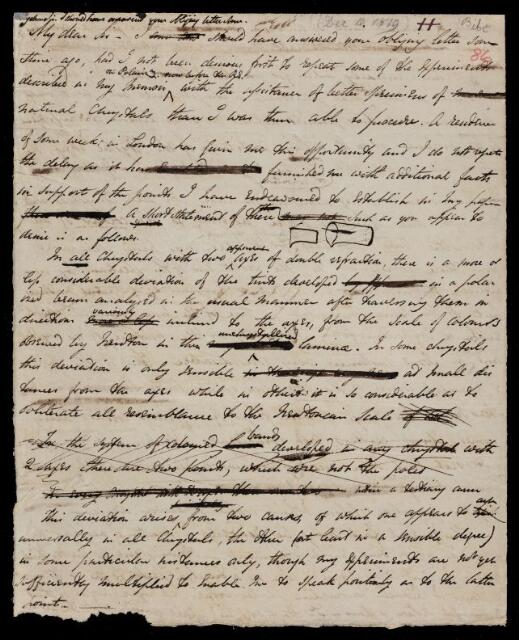 (Dec 19, 1819) H Biot
86
My dear Sir – I should have answered your obliging letter some
time ago, had I not been desirous first to repeat some of the experiments
described in my memoir with the assistance of better specimens of
natural Chrystals than I was then able to procure. A residence
of some weeks in London has given me this opportunity and I do not regret
the delay as it has furnished me with additional facts
in support of the points I have endeavoured to establish in my paper
a short statement of these such as you appear to
desire is as follows.
In all Chrystals with two apparent axes of double refraction, there is a more or
less considerable deviation of the tints developed in a polar
ised beam analysed in the usual manner after traversing them in
directions variously inclined to the axes, from the scale of colours
observed by Newton in thin uncrystallized laminæ. In some chrystals
this deviation is only sensible at small dis
tances from the axes while in others it is so considerable as to
obliterate all resemblance to the Newtonian scale
In the system of coloured bands developed in any chrystal with
2 axes there are two points, which are not the poles
this deviation arises from two causes, of which one appears to
universally in all Chrystals, the other (at least in a sensible degree)
in some particular instances only, though my experiments are not yet
sufficiently multiplied to enable me to speak positively as to the latter
point –